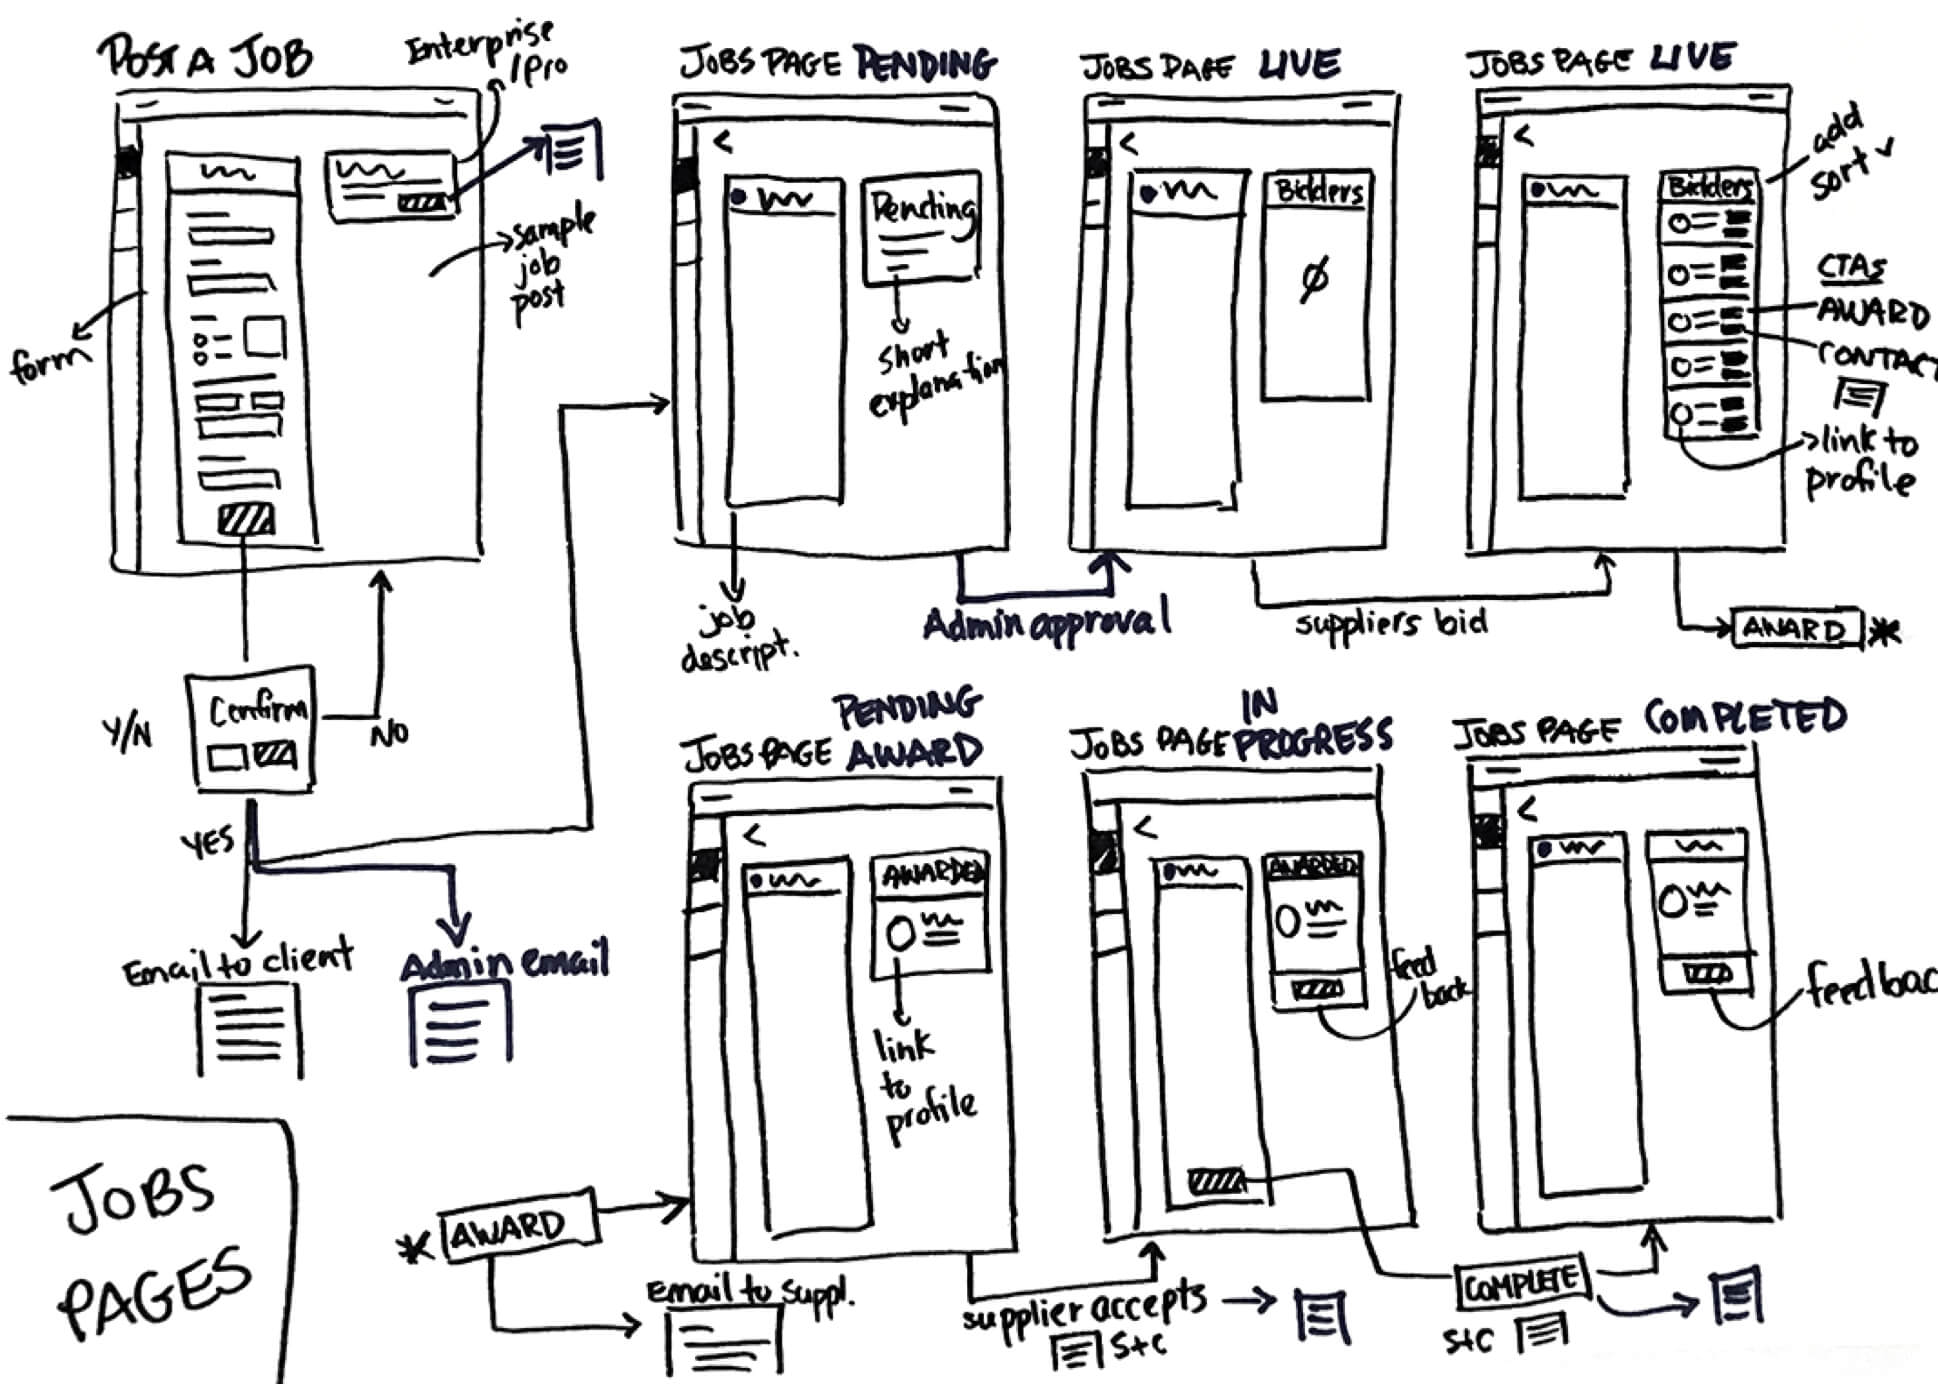 POST A JOB
Enterprise
/Pro
sample
job
post
form
Y/N
Confirm
NO
YES
Email to client
Admin email
JOBS PAGE PENDING
<
Pending
short
explanation
job
descript.
Admin approval
JOBS PAGE LIVE
<
Bidders
Ø
suppliers bid
JOBS PAGE LIVE
<
Bidders
add
sort
CTAs
AWARD
CONTACT
link to
profile
AWARD *
JOBS PAGE PENDING
AWARD
<
AWARDED
link
to
profile
* AWARD
Email to suppl.
supplier accepts
S+C
JOBS PAGE IN
PROGRESS
<
AWARDED
feed
back
COMPLETE
S+C
JOBS PAGE COMPLETED
<
feedbac
JOBS
PAGES